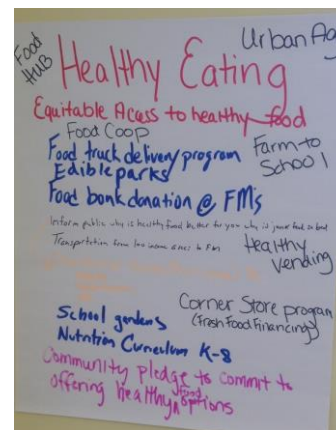 Food
HUB
Urban Ag
Healthy Eating
Equitable Acess to healthy food
Food Coop
Farm to
School
Food truck delivery program
Edible parks
Food bank donation @ FM's
Inform public why is healthy food better for you why is junk food so bad
Transportation from low income areas to FM
Healthy
vending
Corner Store program
(Fresh Food Financing)
School gardens
Nutrition Curriculum K-8
Community pledge to commit to
offering healthy food options